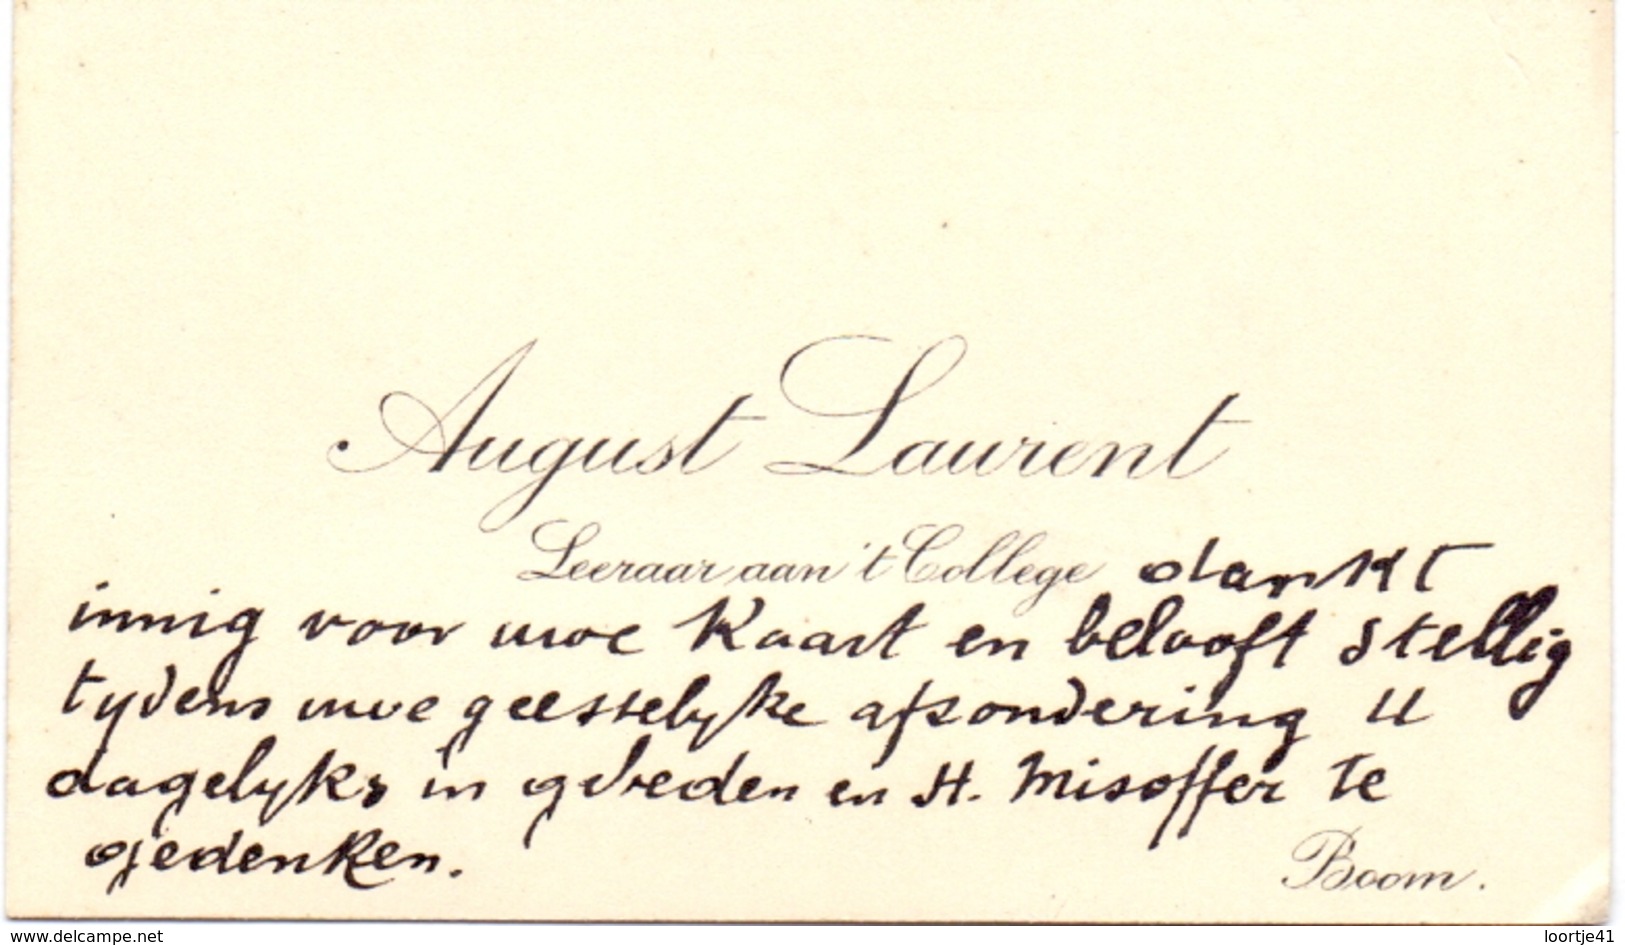 August Laurent
Leeraar aan 't College dankt
innig voor uwe Kaart en belooft stellig
tydens uwe geestelyke afzondering U
dagelyks in gebeden en H. Misoffer te
gedenken.
Boom.
www.delcampe.net
loortje41